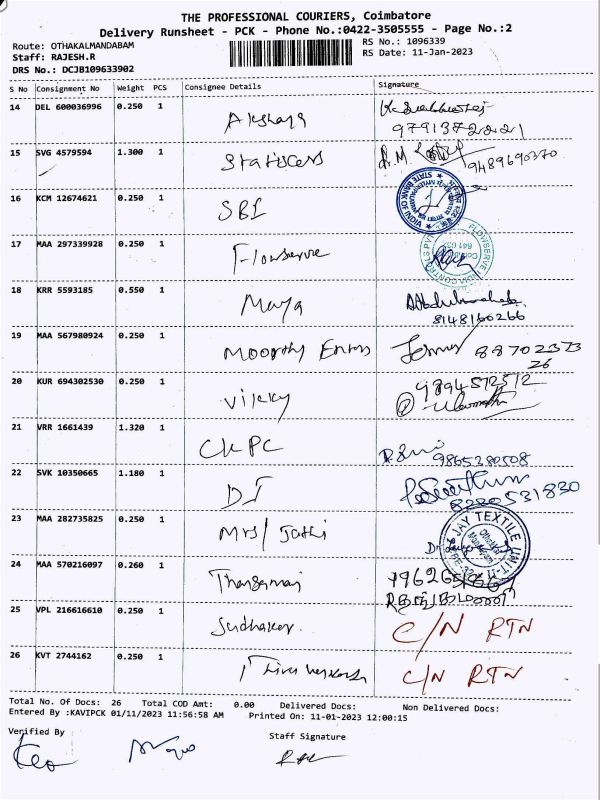 THE PROFESSIONAL COURIERS, Coimbatore
Delivery Runsheet - PCK - Phone No.:0422-3505555 - Page No.:2
Route: OTHAKALMANDABAM
RS No.: 1096339
Staff: RAJESH.R
RS Date: 11-Jan-2023
DRS No.: DCJB109633902
S No Consignment No Weight PCS Consignee Details Signature
14 DEL 600036996 0.250 1 Akshaya
9791372221
15 SVG 4579594 1.300 1
9489690370
16 KCM 12674621 0.250 1 SBI STATE BANK OF INDIA
17 MAA 297339928 0.250 1 Flowserve FLOWSERVE INDIA CONTROLS PVT
18 KRR 5593185 0.550 1 Maya
8148160266
19 MAA 567980924 0.250 1 Moorthy 8870237326
20 KUR 694302530 0.250 1 Vijeky 9894572572
21 VRR 1661439 1.320 1 CKPC 9865380508
22 SVK 10350665 1.180 1 DJ
8220531830
23 MAA 282735825 0.250 1 JAY TEXTILE UNIT-II
24 MAA 570216097 0.260 1
25 VPL 216616610 0.250 1 Sudhaker C/N RTN
26 KVT 2744162 0.250 1 C/N RTN
Total No. Of Docs: 26 Total COD Amt: 0.00 Delivered Docs: Non Delivered Docs:
Entered By :KAVIPCK 01/11/2023 11:56:58 AM Printed On: 11-01-2023 12:00:15
Verified By Staff Signature